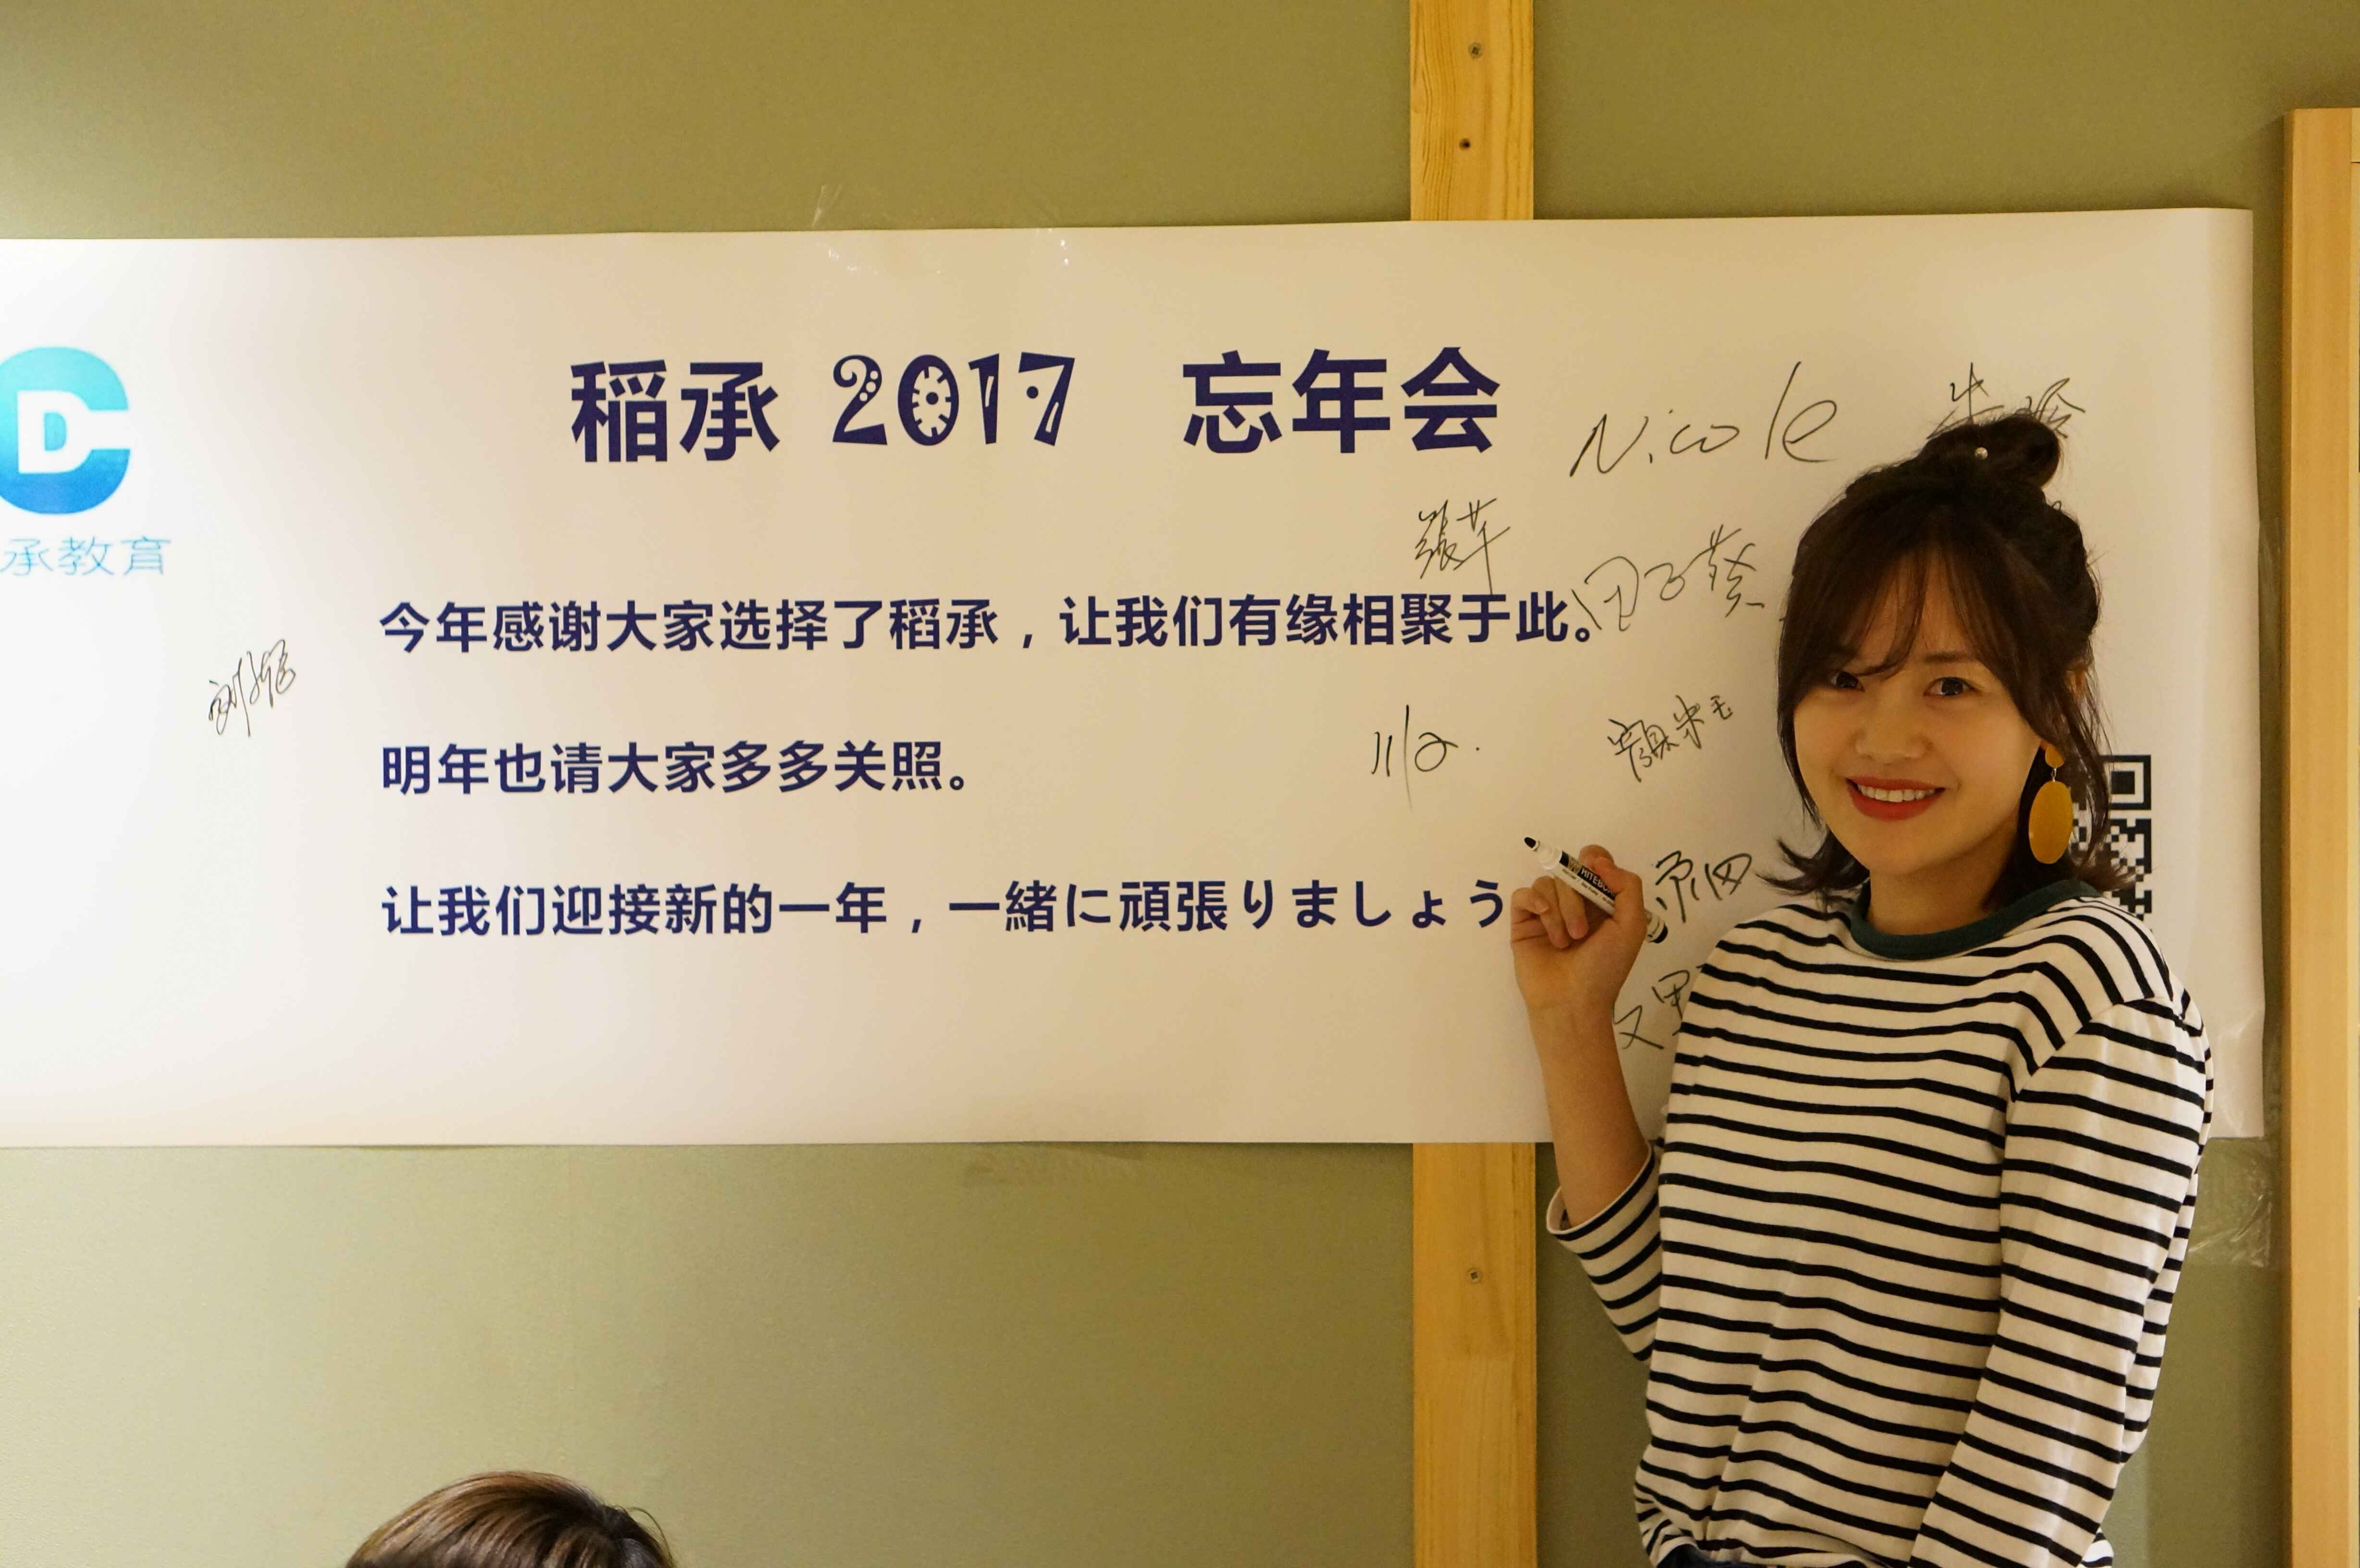 稲承 2017 忘年会
Nicole
D
承教育
今年感谢大家选择了稻承，让我们有缘相聚于此。
田子葵
明年也请大家多多关照。
让我们迎接新的一年，一緒に頑張りましょう